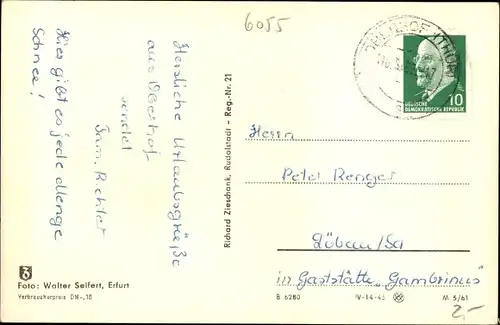 6055
Herzliche Urlaubsgrüße
aus Oberhof
sendet
Fam. Richter
Hier gibt es jede Menge
Schnee!
Richard Zieschank, Rudolstadt - Reg.-Nr. 21
OBERHOF (THÜR)
DEUTSCHE
DEMOKRATISCHE REPUBLIK
10
Herrn
Peter Renger
Löbau/Sa
in Gaststätte „Gambrinus"
Foto: Walter Seifert, Erfurt
Verbraucherpreis DM -,18
B 6280
IV-14-45
M 5/61
2,-